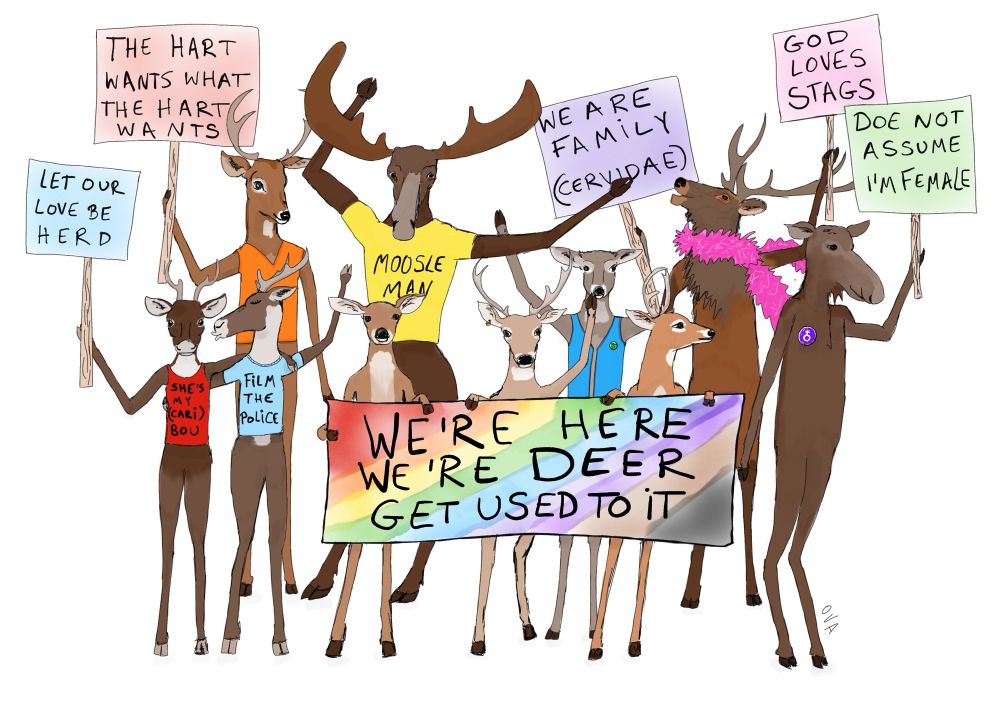 THE HART
WANTS WHAT
THE HART
WANTS
LET OUR
LOVE BE
HERD
WE ARE
FAMILY
(CERVIDAE)
GOD
LOVES
STAGS
DOE NOT
ASSUME
I'M FEMALE
MOOSLE
MAN
SHE'S
MY
(CARI)
BOU
FILM
THE
POLICE
WE'RE HERE
WE'RE DEER
GET USED TO IT
OVA